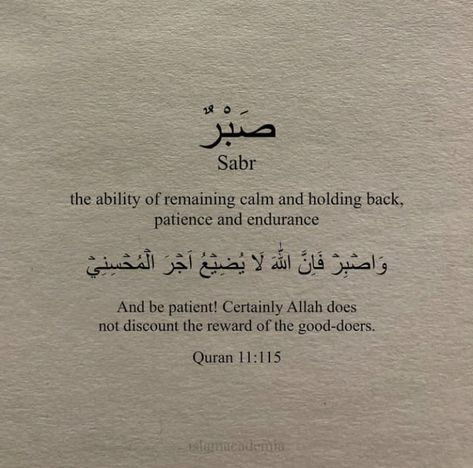 صَبْرٌ
Sabr
the ability of remaining calm and holding back,
patience and endurance
وَاصْبِرْ فَاِنَّ اللّٰهَ لَا يُضِيْعُ اَجْرَ الْمُحْسِنِيْ
And be patient! Certainly Allah does
not discount the reward of the good-doers.
Quran 11:115
islamacademia